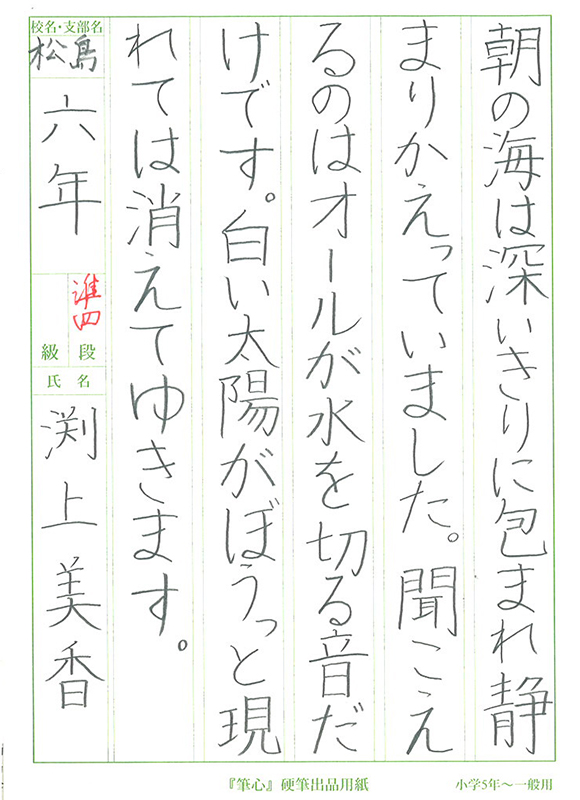 朝の海は深いきりに包まれ静
まりかえっていました。聞こえ
るのはオールが水を切る音だ
けです。白い太陽がぼうっと現
れては消えてゆきます。
校名・支部名
松島
六年
準四
級 段
氏 名
渕上美香
『筆心』硬筆出品用紙
小学5年〜一般用